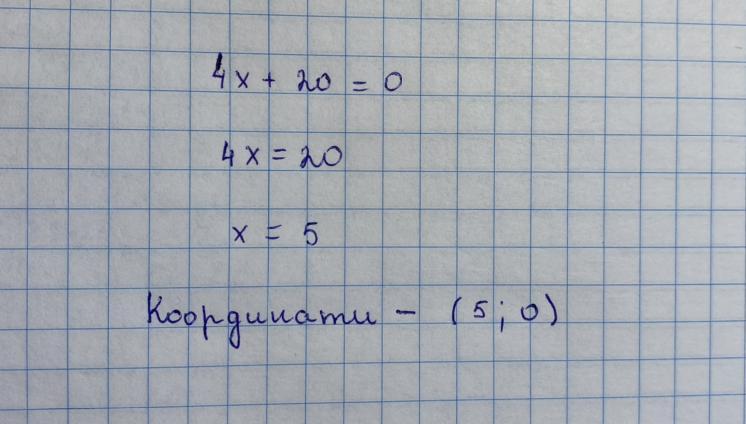 4x + 20 = 0
4x = 20
x = 5
Координати - (5; 0)